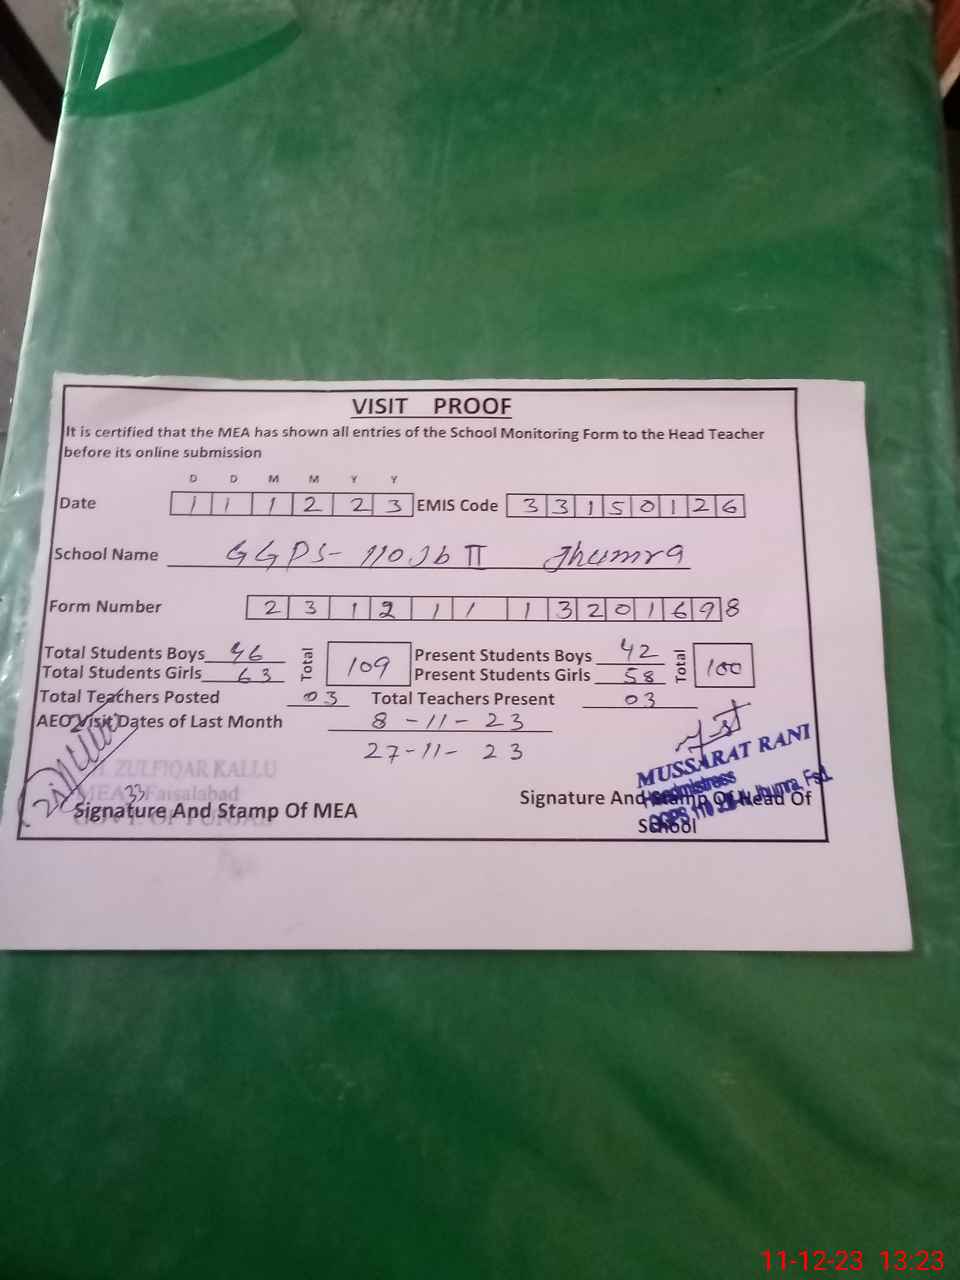 VISIT PROOF
It is certified that the MEA has shown all entries of the School Monitoring Form to the Head Teacher
before its online submission
D D M M Y Y
Date 1 1 1 2 2 3 EMIS Code 3 3 1 5 0 1 2 6
School Name GGPS- 110 Jb II Jhumra
Form Number 2 3 1 2 1 1 1 3 2 0 1 6 9 8
Total Students Boys 46 Total 109 Present Students Boys 42 Total 100
Total Students Girls 63 Present Students Girls 58
Total Teachers Posted 03 Total Teachers Present 03
AEO Visit Dates of Last Month 8-11-23
27-11-23
ZULFIQAR KALLU
MEA 33 Faisalabad
GOVT. OF PUNJAB
Signature And Stamp Of MEA
MUSSARAT RANI
Headmistress
GGPS 110 Jhumra Fsd.
Signature And Stamp Of Head Of
School
11-12-23 13:23